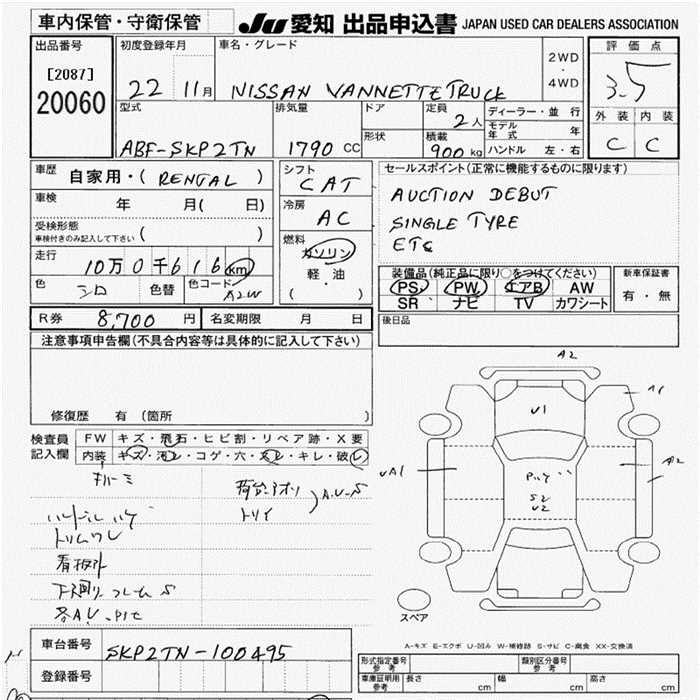 車内保管・守衛保管
JU 愛知 出品申込書 JAPAN USED CAR DEALERS ASSOCIATION
出品番号
[2087]
20060
初度登録年月
22 11月
車名・グレード
NISSAN VANNETTE TRUCK
2WD
・
4WD
評価点
3.5
外装 内装
C C
型式
ABF-SKP2TN
排気量
1790 CC
ドア
形状
定員
2人
積載
900 kg
ディーラー・並行
モデル年式 年
ハンドル 左・右
車歴
自家用・( RENTAL )
車検 年 月( 日)
受検形態
車検付きのみ記入して下さい ( )
走行
10万0千616 km
色 シロ 色替 色コード A2W
シフト
CAT
冷房
AC
燃料
ガソリン
軽・油
( )
セールスポイント(正常に機能するものに限ります)
AUCTION DEBUT
SINGLE TYRE
ETC
装備品(純正品に限り○をつけてください)
PS PW エアB AW
SR ナビ TV カワシート
新車保証書
有・無
R券 8,700 円 名変期限 月 日
後日品
注意事項申告欄(不具合内容等は具体的に記入して下さい)
修復歴 有 (箇所 )
検査員
記入欄
FW キズ・飛石・ヒビ割・リペア跡・X要
内装 キズ・汚レ・コゲ・穴・スレ・キレ・破レ
荷台アオリ
A.U-S
ハンドルハゲ
看板跡
下廻りフレームS
A2
A1
U1
UA1
A2
S2
U2
スペア
A-キズ E-エクボ U-凹み W-補修跡 S-サビ C-腐食 XX-交換済
車台番号
SKP2TN-100495
登録番号
形式指定番号
参考
類別区分番号
参考
車庫証明用
参考
長さ cm 幅 cm 高さ cm